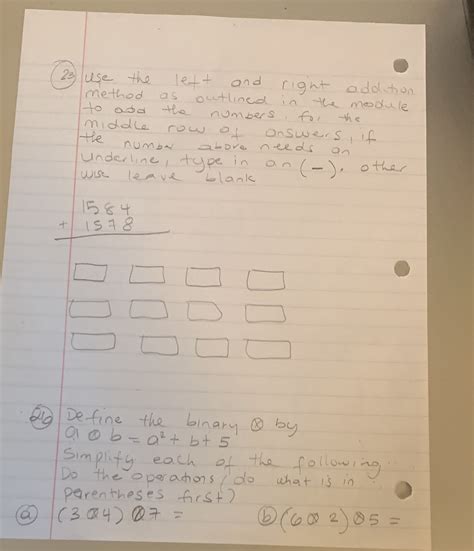 23 Use the left and right addition
method as outlined in the module
to add the numbers, for the
middle row of answers, if
the number above needs an
underline, type in an (-). other
wise leave blank
1584
+ 1578
26 Define the binary ⊗ by
a ⊗ b = a² + b + 5
Simplify each of the following.
Do the operations (do what is in
parentheses first)
a (3 ⊗ 4) ⊗ 7 =
b (6 ⊗ 2) ⊗ 5 =